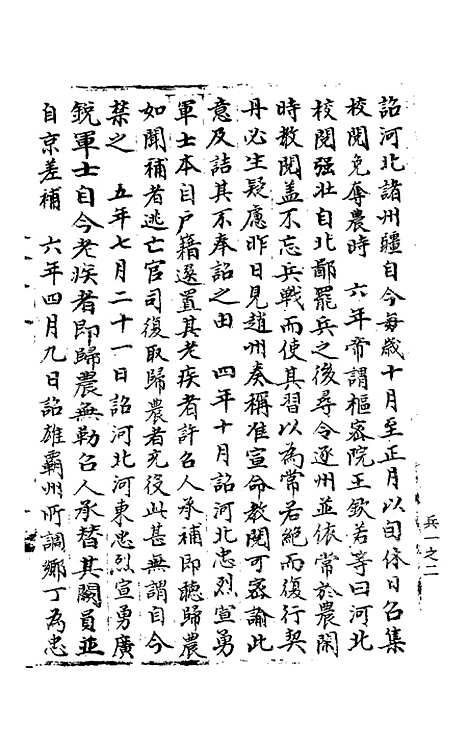 詔河北諸州疆自今每歲十月至正月以旬休日召集
校閱免奪農時　六年帝謂樞密院王欽若等曰河北
校閱强壯自北鄙罷兵之後尋令逐州並依常於農閑
時教閱盖不忘兵戰而使其習以為常若絕而復行契
丹必生疑慮昨日見趙州奏稱准宣命教閱可密諭此
意及詰其不奉詔之由　四年十月詔河北忠烈宣勇
軍士本自戶籍選置其老疾者許召人承補即聽歸農
如聞補者逃亡官司復取歸農者充役此甚無謂自今
禁之　五年七月二十一日詔河北河東忠烈宣勇廣
銳軍士自今老疾者即歸農無勒召人承替其闕員並
自京差補　六年四月九日詔雄霸州所調鄉丁為忠
兵一之二